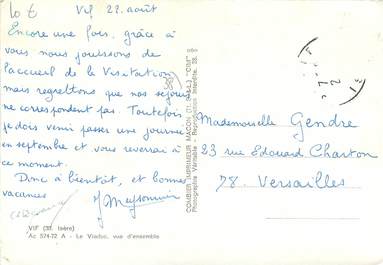 Vif 22 août
Encore une fois, grâce à
vous nous jouissons de
l'accueil de la Visitation
mais regrettons que nos séjours
ne correspondent pas. Toutefois
je dois venir passer une journée
en septembre et vous reverrai à
ce moment.
Donc à bientôt, et bonnes
vacances
VIF (38. Isère)
Ac 574-72 A - Le Viaduc, vue d'ensemble
COMBIER IMPRIMEUR MACON (T. S.-&-L.) "CIM"
Photographie Véritable - Reproduction Interdite.
Mademoiselle Gendre
23 rue Edouard Charton
78. Versailles